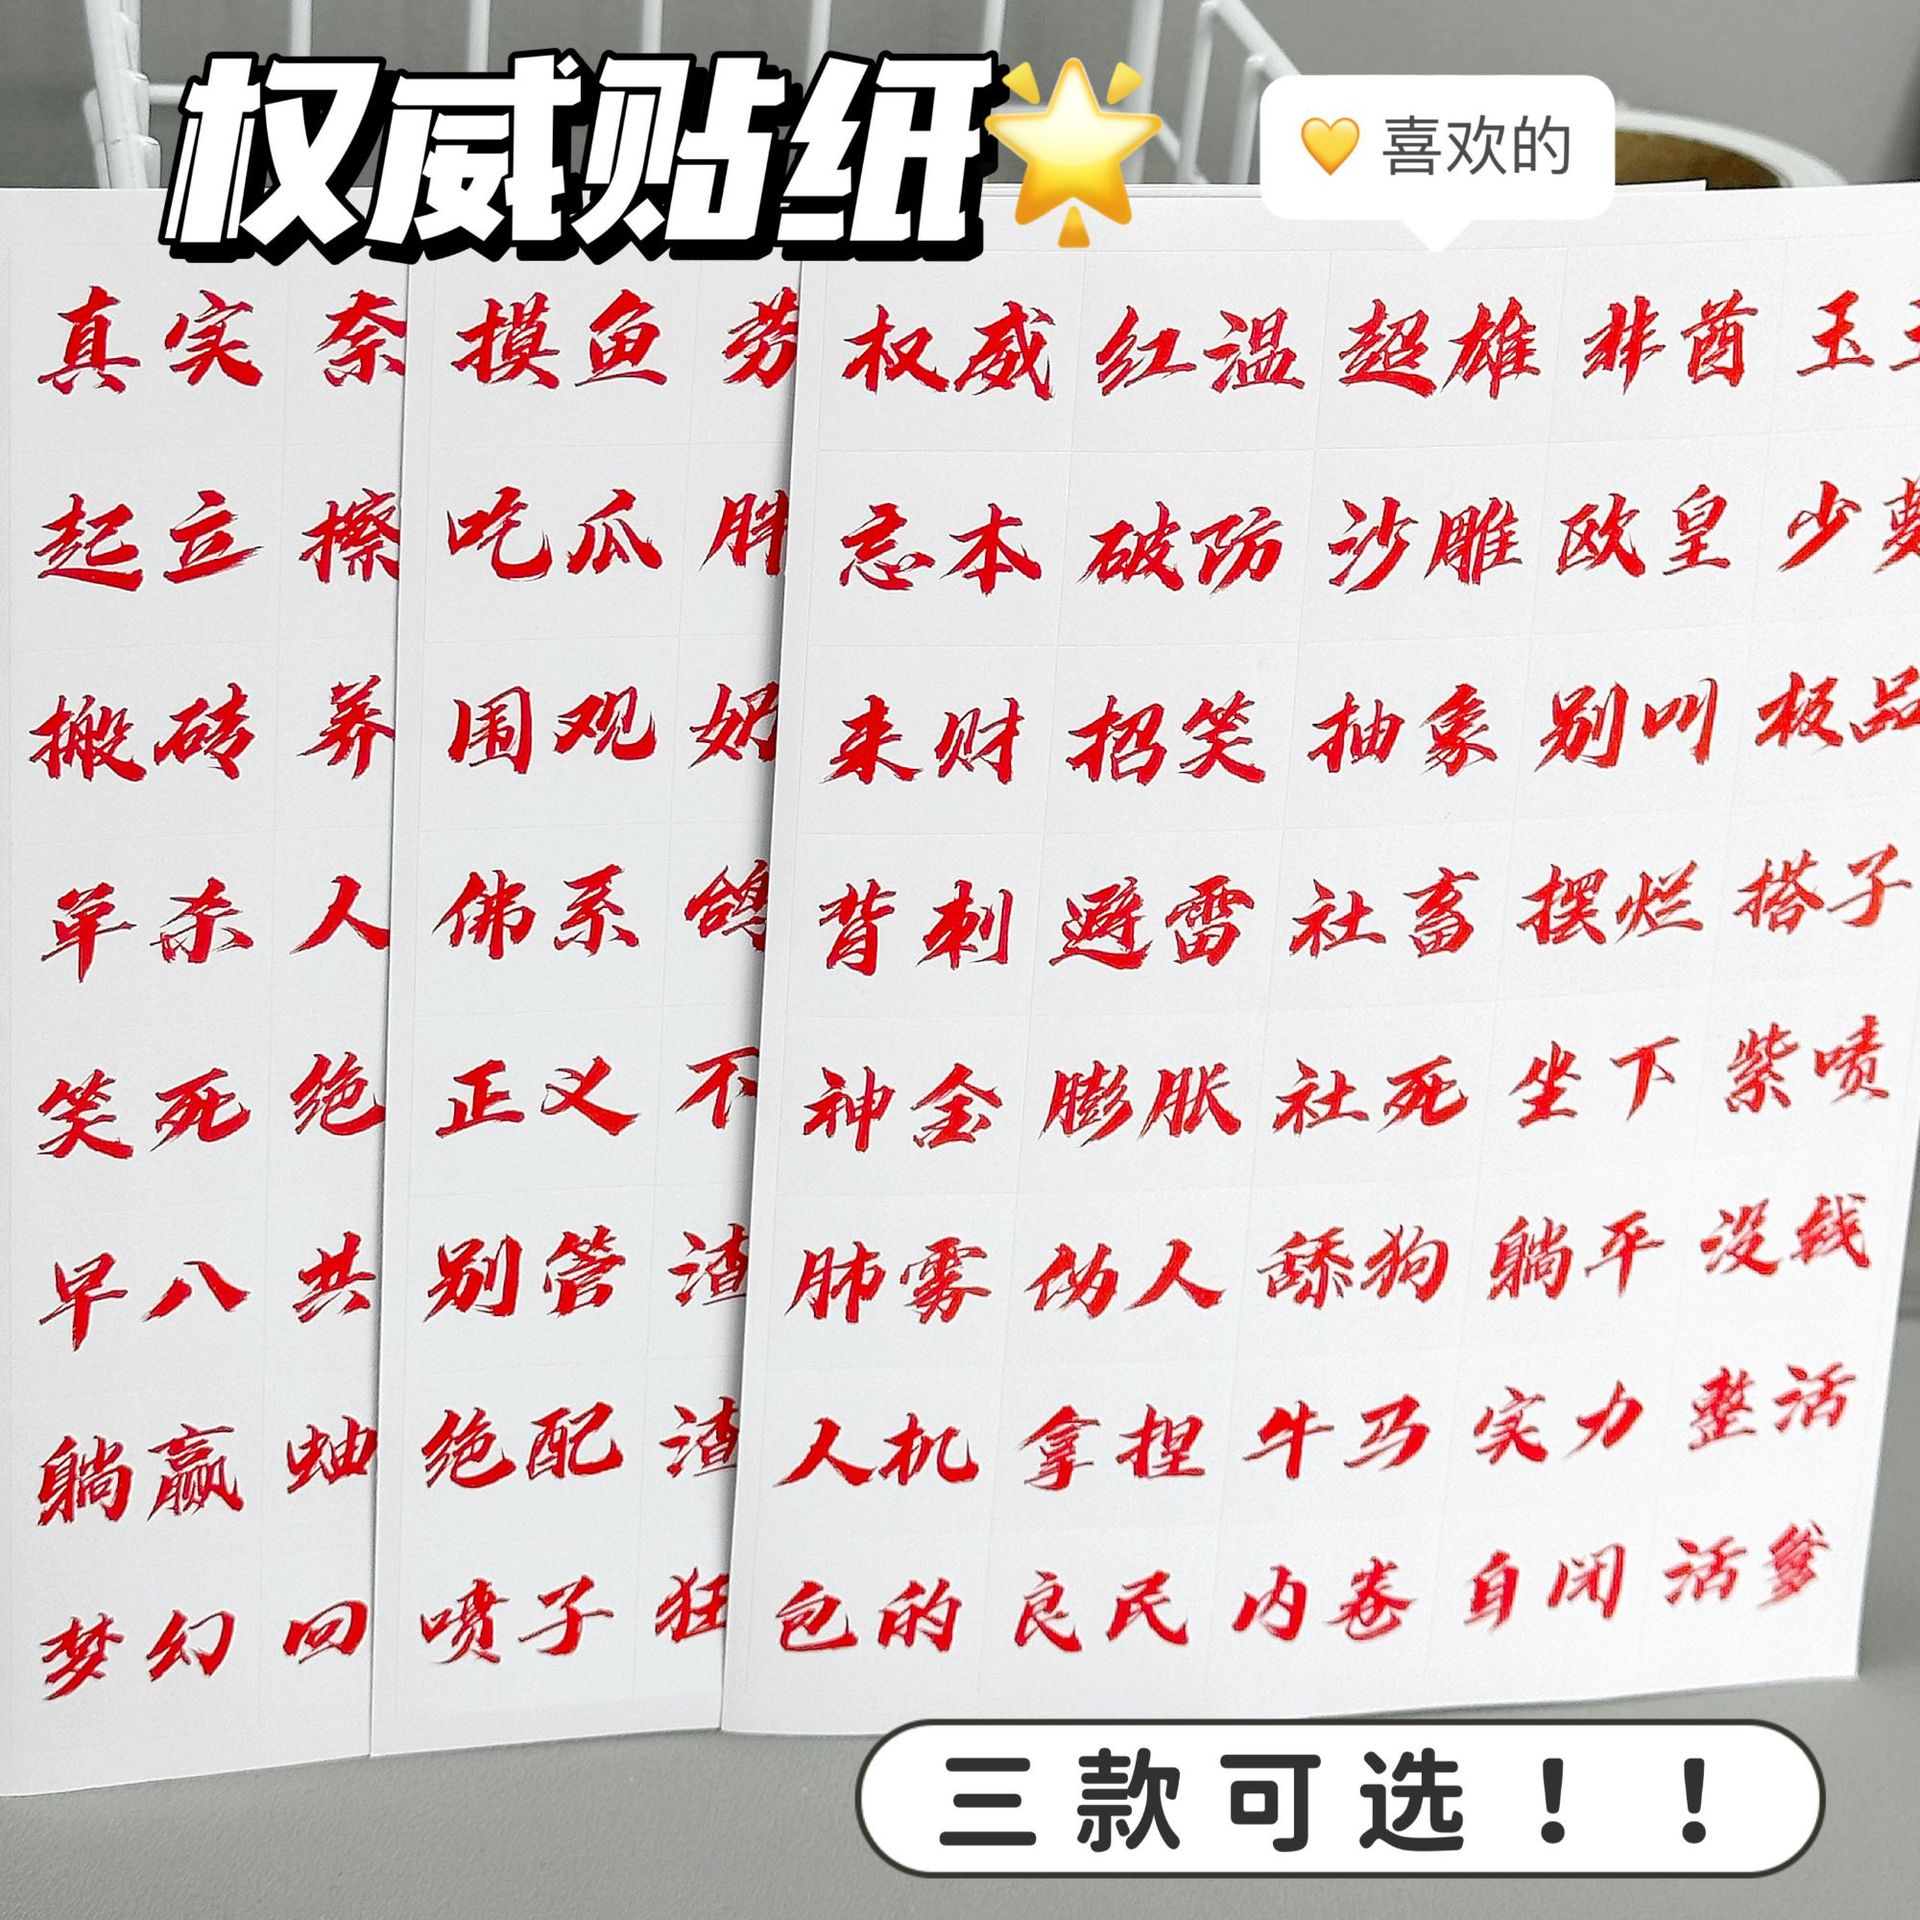 权威贴纸
喜欢的
真实 奈
起立 擦
搬砖 养
草杀 人
笑死 绝
早八 共
躺赢 蚰
梦幻 回
摸鱼 劳
吃瓜 胖
围观 奶
佛系 鸽
正义 不
别管 渣
绝配 渣
喷子 狂
权威 红温 超雄 非酋 玉玉
忘本 破防 沙雕 欧皇 少萝
来财 招笑 抽象 别叫 极品
背刺 避雷 社畜 摆烂 搭子
神金 膨胀 社死 坐下 紫喷
肺雾 伪人 舔狗 躺平 没钱
人机 拿捏 牛马 实力 整活
包的 良民 内卷 自闭 活爹
三款可选！！